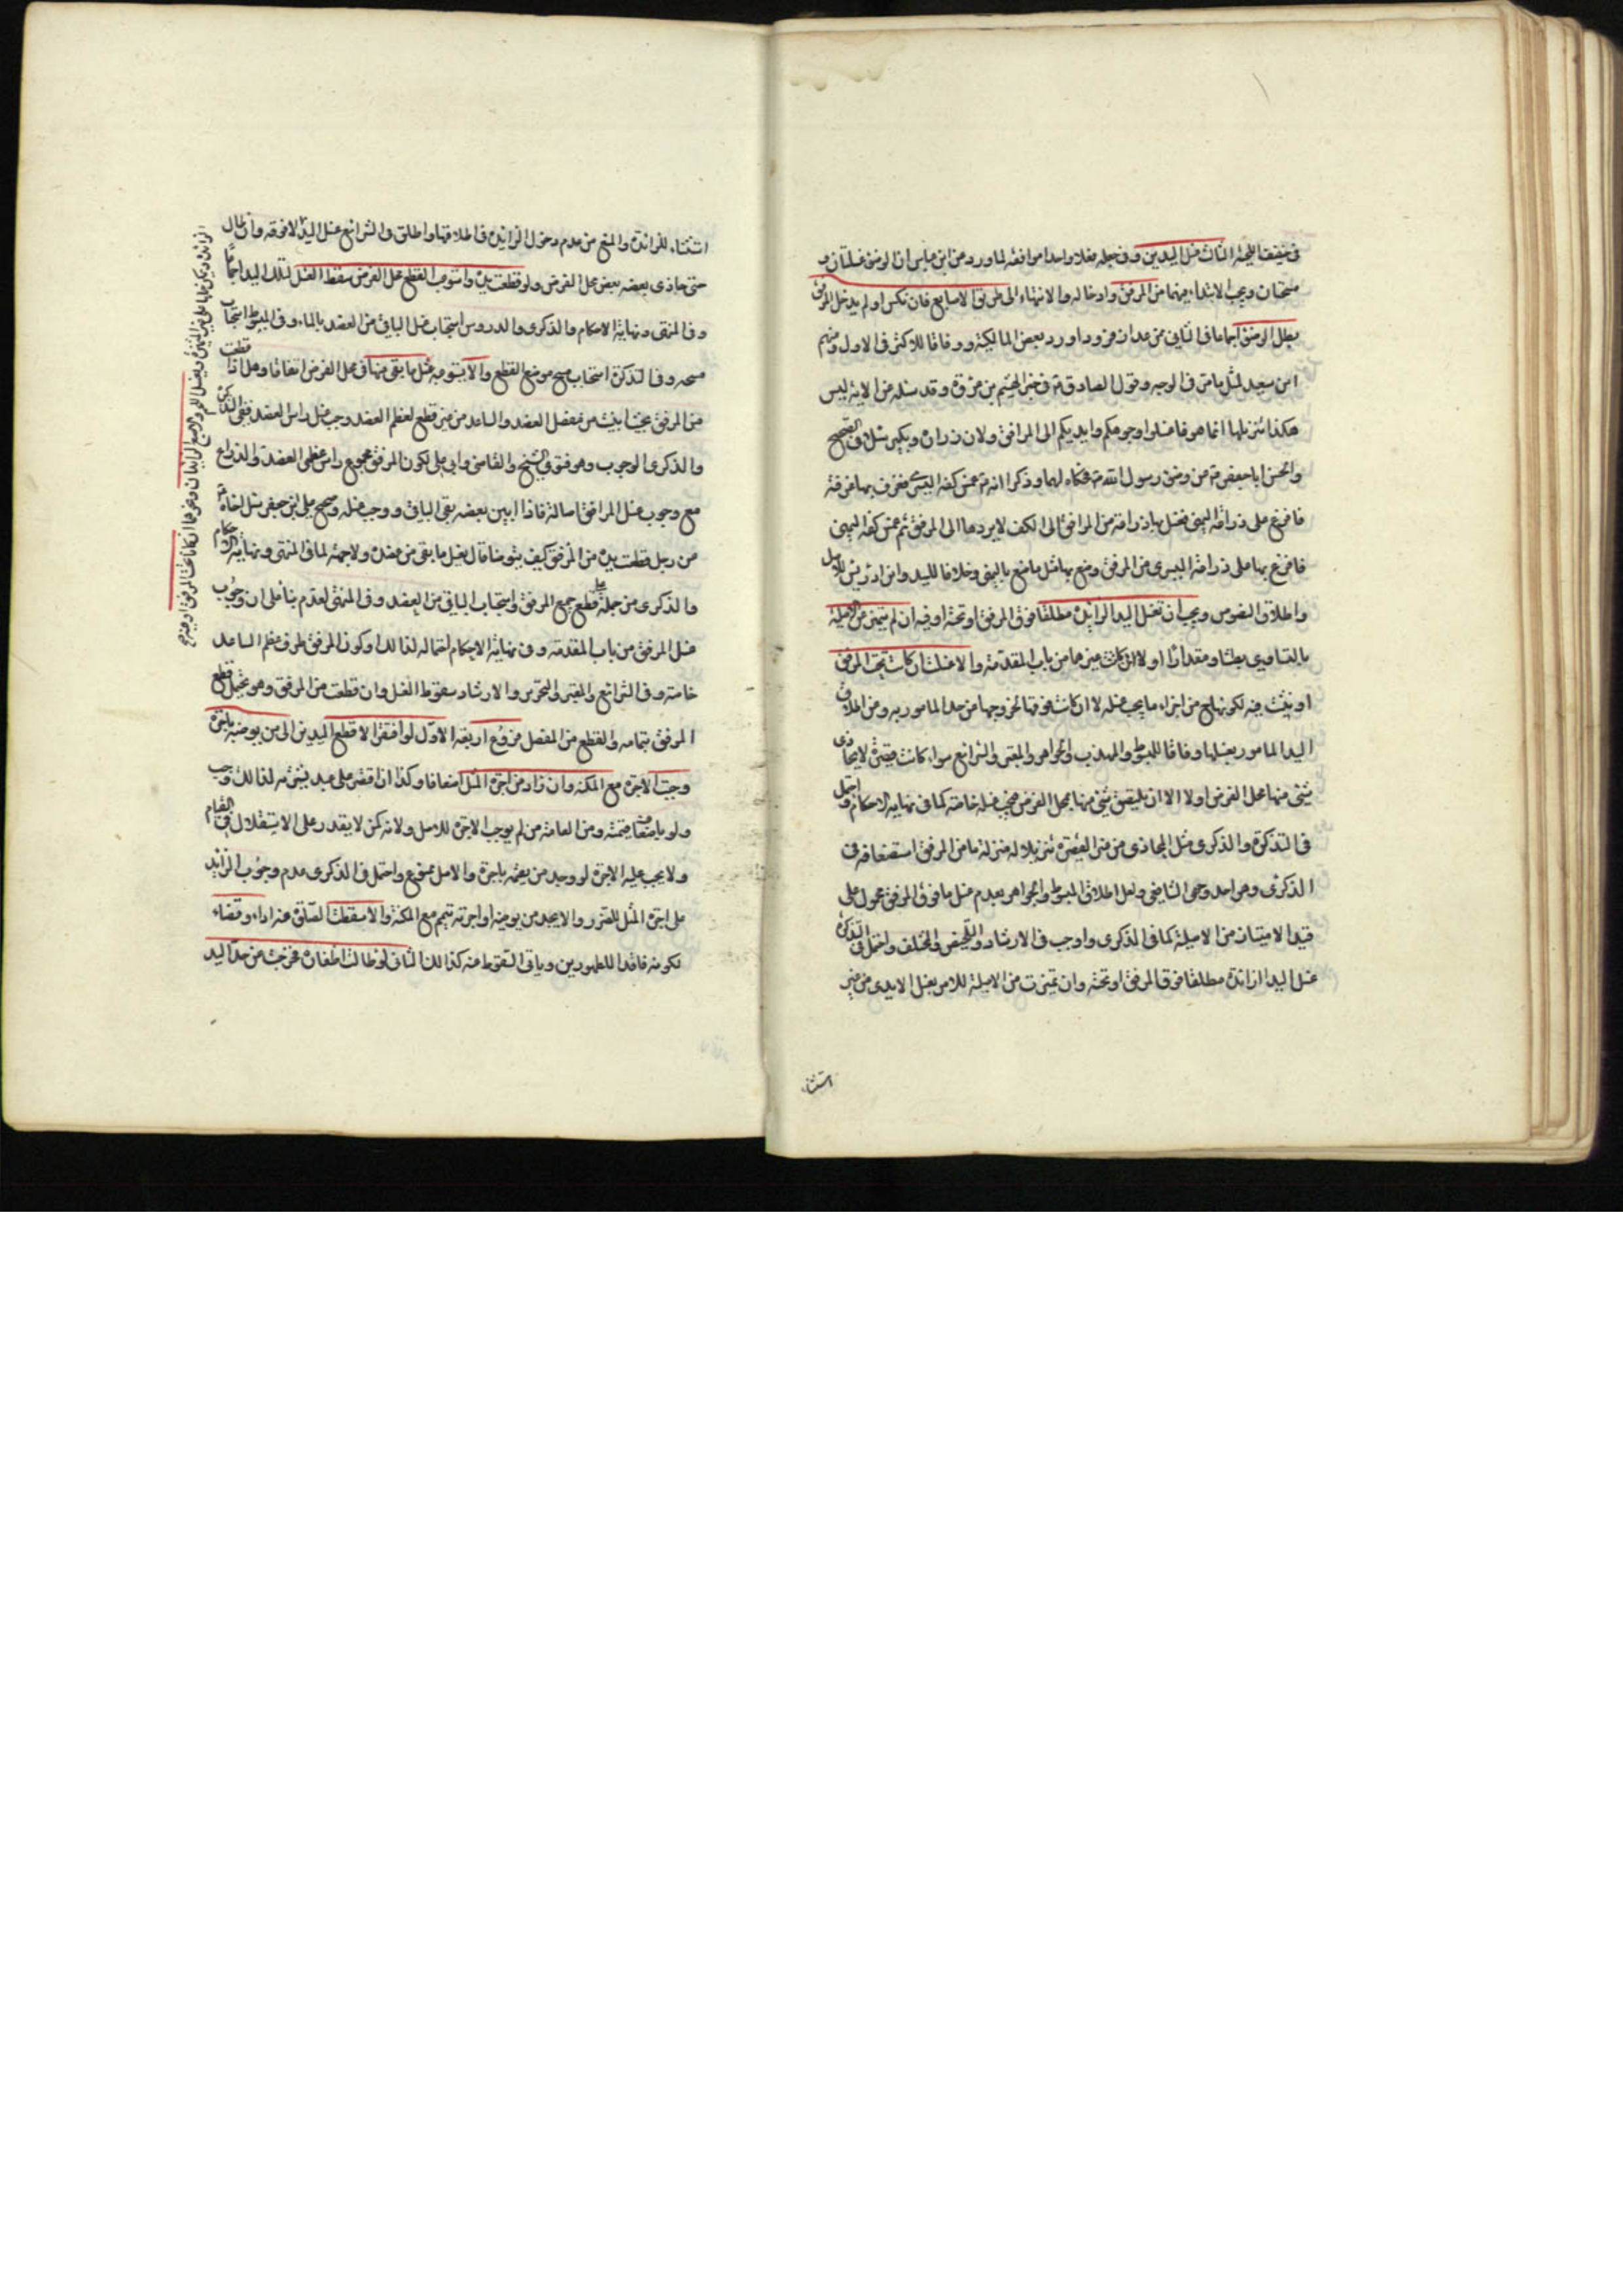 في حقيقة اللحية الثالث غسل اليدين وفي جعله فعلا واحدا موافقة لما ورد عن ابن عباس ان الوضوء غسلتان و
مسحتان ويجب الابتداء بهما من المرفق وادخاله والانتهاء الى طرف الاصابع فان نكس او لم يدخل المرفق
بطل الوضوء اجماعا في الثاني ممن عدا زفر وداود وبعض المالكية ووفاقا للاكثر في الاول ومنهم
ابن سعيد لمثل ما مر في الوجه وقول الصادق في خبر الهيثم بن عروة وقد سئله عن الاية ليس
هكذا تنزيلها انما هو فاغسلوا وجوهكم وايديكم الى المرافق ولان زرارة وبكير سئلا في الصحيح
والحسن ابا جعفر عن وضوء رسول الله فحكاه لهما وذكرا انه غمس كفه اليسرى فغرف بها غرفة
فافرغ على ذراعه اليمنى فغسل بها ذراعه من المرافق الى الكف لا يردها الى المرفق ثم غمس كفه اليمنى
فافرغ بها على ذراعه اليسرى من المرفق وصنع بها مثل ما صنع باليمنى وخلافا للسيد وابن ادريس للاصل
واطلاق النصوص ويجب ان تغسل اليد الزائدة مطلقا فوق المرفق او تحته او فيه ان لم يتميز من الاصلية
بالتساوي بطشا ومقدارا او لا لان كانت غيرها من باب المقدمة والا غسلت ان كانت تحت المرفق
او نبتت فيه لكونها ح من اجزاء ما يجب غسله لا ان كانت فوقها لخروجها من حد المامور به ومن اطلاق
اليد المامور بغسلها وفاقا للمبسوط والمهذب والجواهر والمعتبر والشرائع سواء كانت قصيرة لا يحاذي
شيء منها محل الفرض او لا الا ان يلتصق شيء منها بمحل الفرض فيجب غسله خاصة كما في نهاية الاحكام واحتمل
في التذكرة والذكرى غسل المحاذي من غير القصيرة تنزيلا له منزلة ما من المرفق استضعافه في
الذكرى وهو احد وجهي الشافعي ولعل اطلاق المبسوط والجواهر بعدم غسل ما فوق المرفق محمول على
قيد الامتياز من الاصلية كما في الذكرى واوجب في الارشاد والتلخيص والمختلف واحتمل في التذكرة
غسل اليد الزائدة مطلقا فوق المرفق او تحته وان تميزت من الاصلية للامر بغسل الايدي من غير
استثناء
استثناء للزائدة والمنع من عدم دخول الزائدة في اطلاقها واطلق في الشرائع غسل اليد لا فوقه وان طال
حتى حاذى بعضه بعض محل الفرض ولو قطعت يده واستوعب القطع محل الفرض سقط الغسل لتلك اليد اجماعا
وفي المنتهى ونهاية الاحكام والذكرى والدروس استحباب غسل الباقي من العضد بالماء وفي المبسوط استحباب
مسحه وفي التذكرة استحباب مسح موضع القطع والا يستوعبه غسل ما بقي منها في محل الفرض اتفاقا وهل اذا قطعت
من المرفق بحيث ابينت من مفصل العضد والساعد من غير قطع لعظم العضد وجب غسل راس العضد ففي التذكرة
والذكرى الوجوب وهو فتوى الشيخ والقاضي وابي علي لكون المرفق مجموع راس عظمي العضد والذراع
مع وجوب غسل المرافق اصالة فاذا ابين بعضه بقي الباقي ووجب غسله وصحيح علي بن جعفر سئل اخاه
عن رجل قطعت يده من المرفق كيف يتوضا قال يغسل ما بقي من عضده ولا جهة لما في المنتهى ونهاية الاحكام
والذكرى من حمله على قطع جميع المرفق واستحباب الباقي من العضد وفي المنتهى العدم بناء على ان وجوب
غسل المرفق من باب المقدمة وفي نهاية الاحكام احتماله لذلك او كون المرفق طرف عظم الساعد
خاصة وفي الشرائع والمعتبر والتحرير والارشاد سقوط الغسل وان قطعت من المرفق وهو يحتمل قطع
المرفق بتمامه والقطع من المفصل فروع اربعة الاول لو افتقر الاقطع اليدين الى من يوضئه باجرة
وجبت الاجرة مع المكنة وان زاد من اجرة المثل اضعافا وكذا ان اقتصر على عبد يشتريه لذلك وجب
ولو باضعاف قيمته ومن العامة من لم يوجب الاجرة للاصل ولانه كمن لا يقدر على الاستقلال في القيام
ولا يجب عليه الاجرة لو وجد من يقيمه باجرة والاصل ممنوع واحتمل في الذكرى عدم وجوب الزائد
على اجرة المثل للضرر والا يجد من يوضئه او اجرته تيمم مع المكنة والا سقطت الصلوة عنه اداء وقضاء
لكونه فاقدا للطهورين وياتي السقوط عنه كذلك الثاني لو طالت اظفاره فخرجت عن حد اليد